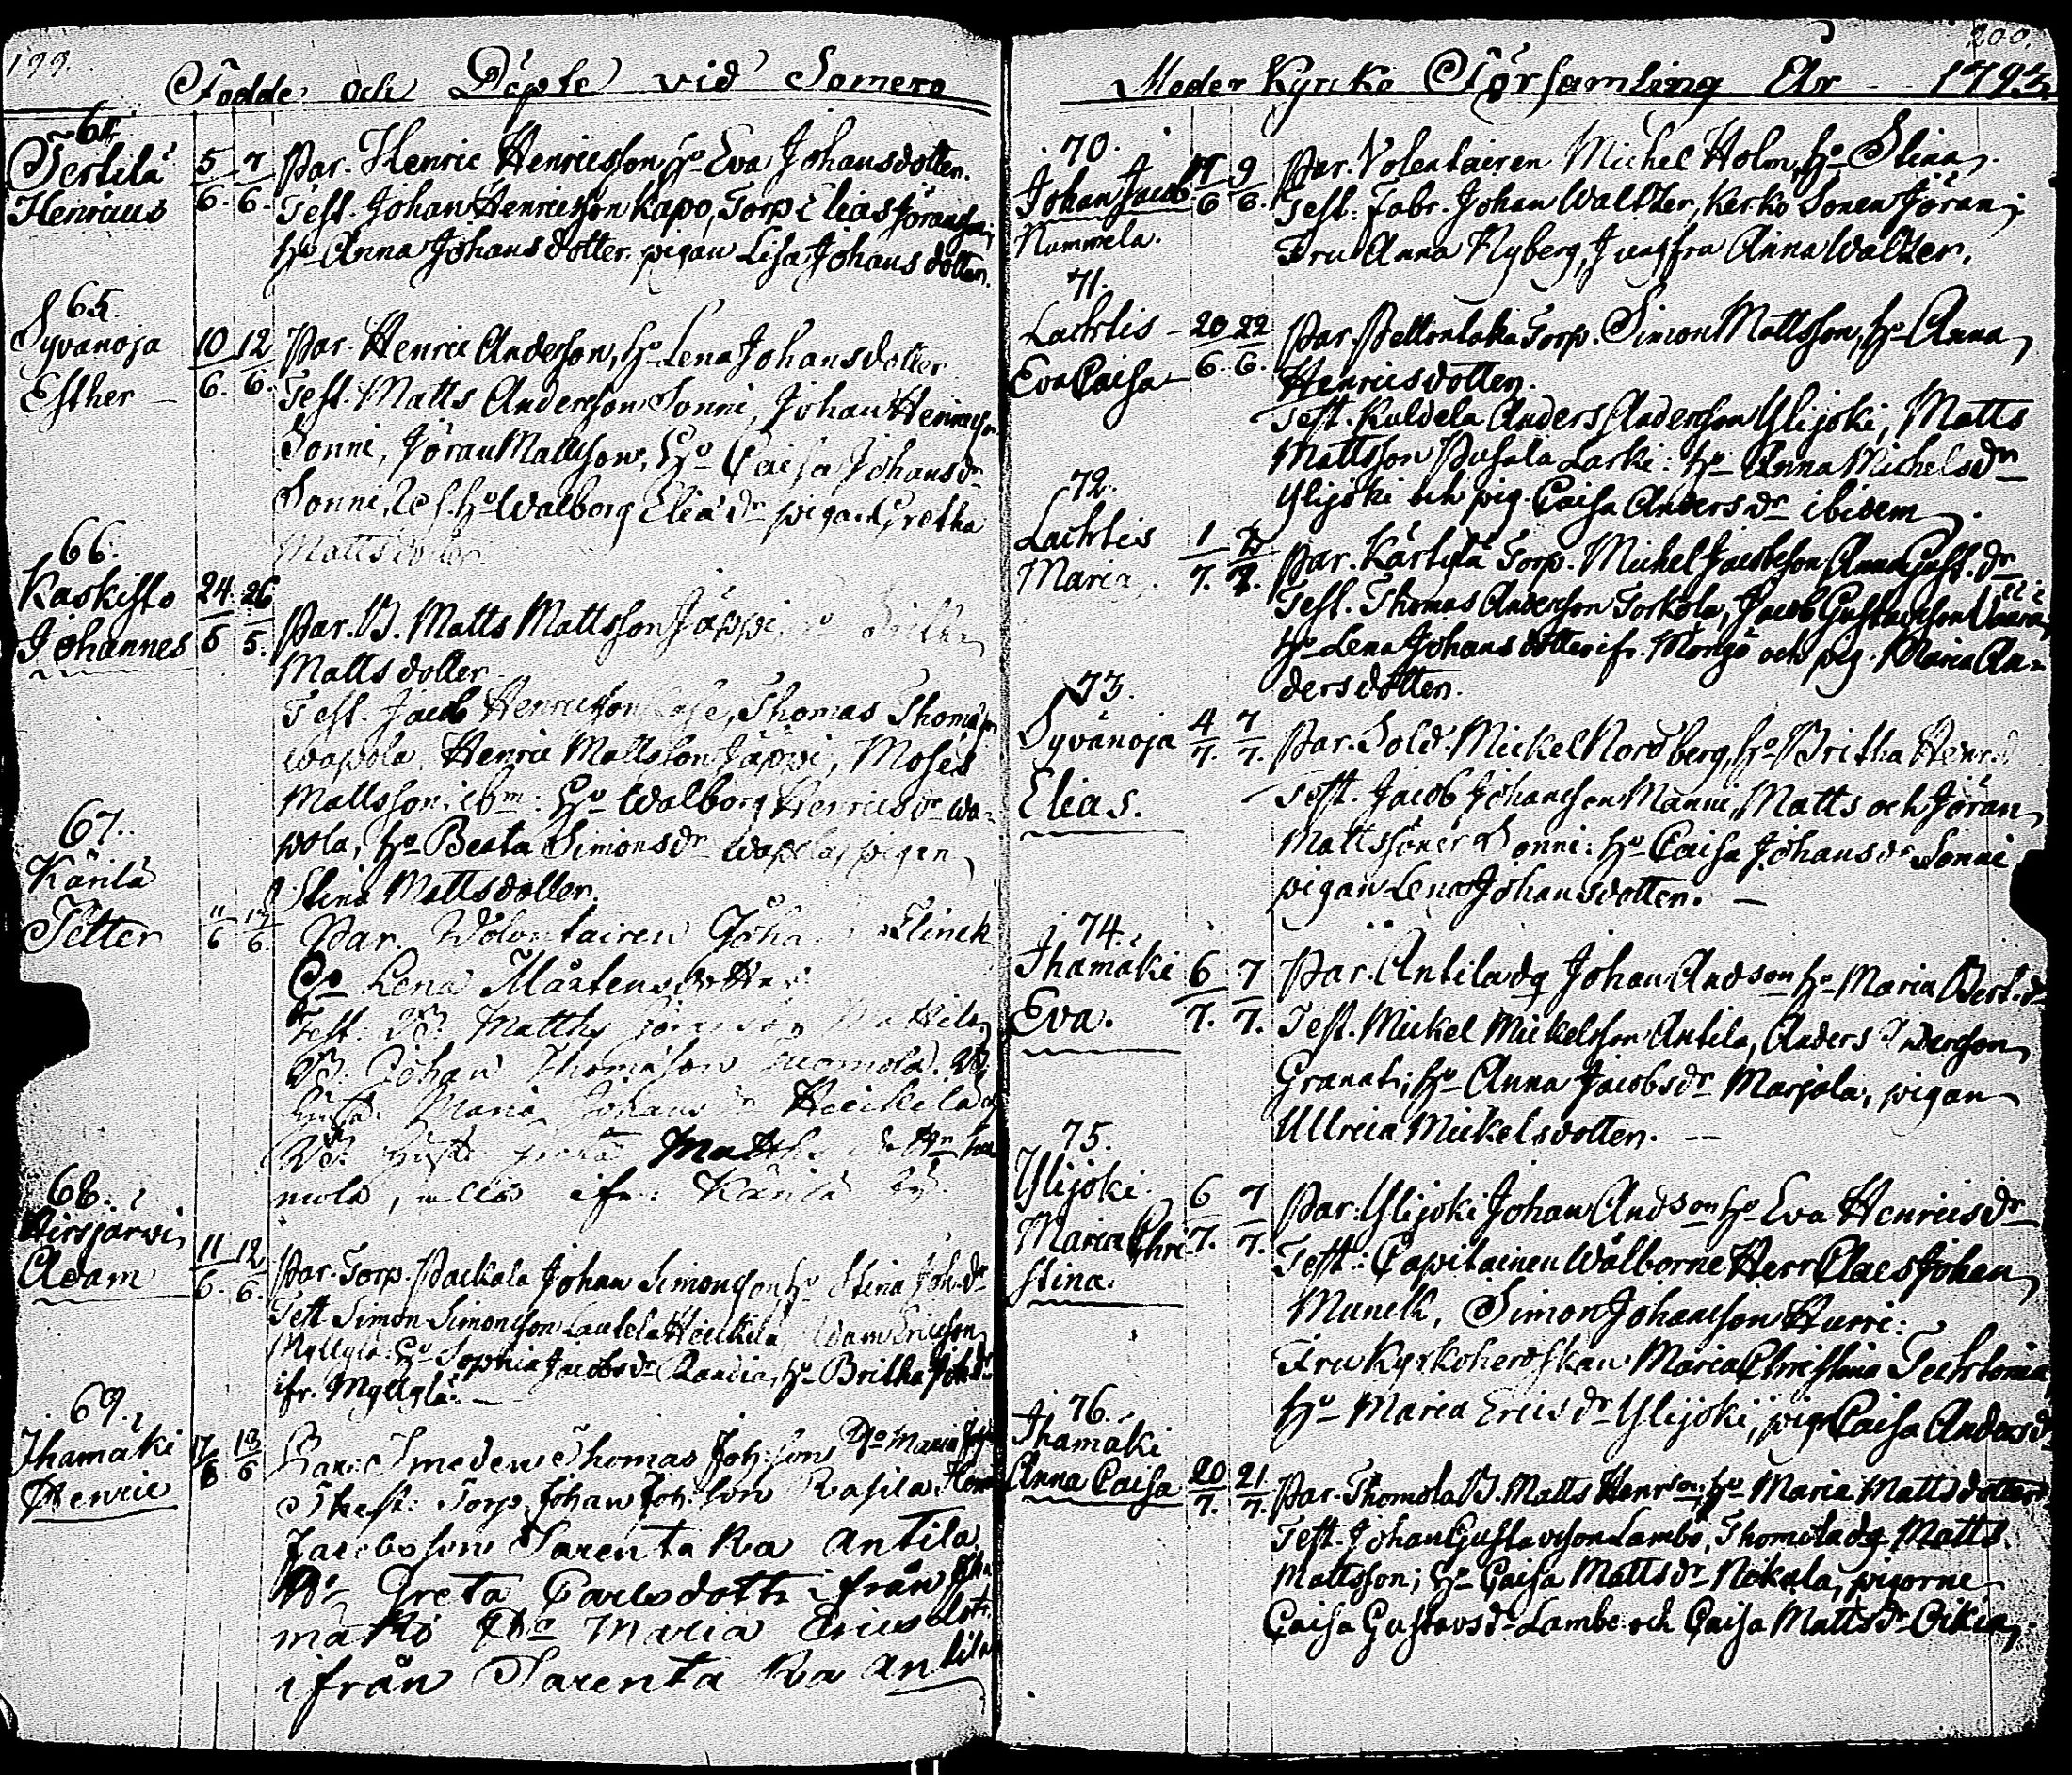 199.
Födde och Döpte vid Somero
64.
Tertilä
Henricus
5/6. 7/6.
Par. Henric Henricsson, Ho Eva Johansdotter.
Test. Johan Henricsson Kapo, Torp Elias Göransson,
Ho Anna Johansdotter. pigan Lisa Johansdotter.
65.
Syvänoja
Esther
10/6. 12/6.
Par. Henric Andersson, Ho Lena Johansdotter
Test. Matts Andersson Sonni, Johan Henricsson
Sonni, Jöran Mattsson, Ho Caisa Johansdr
Sonni, Ho Walborg Eliædr pigan Gretha
Mattsdotter
66.
Kaskisto
Johannes
24/5 26/5.
Par. B. Matts Mattsson Jäppi
Mattsdotter
Test. Jacob Henricsson Thomas Thomasson
Wapola, Henric Mattsson Jäppi, Moses
Mattsson, ibm: Ho Walborg Henricsdr Wa-
pola, Ho Beata Simonsdr Wapola, pigan
Stina Mattsdotter.
67.
Kärilä
Petter
11/6 13/6.
Par. Wolontairen Johan Flinck
Ho Lena Mårtensdotter
Test. Matths Göransson
Johan Thomasson Tuomola.
Maria Johansdr Heickilä
Matths
mola, alla ifr. Kärilä by.
68.
Hirsjärwi
Adam
11/6. 12/6.
Par. Torp. Packala Johan Simonsson, Ho Stina Joh.dr
Test Simon Simonsson Lautela Heickilä Adam Ericsson
Myllylä. Ho Sophia Jacobsdr Ho Britha Joh.dr
ifr. Myllylä.
69.
Ihamäki
Henric
17/6 18/6
Par: Smeden Thomas Joh:son Ho Maria
Thest: Torp. Johan Joh:son Rasila.
Jacobsson Sarenta Ra Antila
Ho Greta Carlsdottr ifrån Iha
mäki Ho Maria Ericsdotr.
ifrån Sarenta Ra Antila
200.
Moder Kyrko Församling År 1793.
70.
Johan Jacob
Nummela.
9/6.
Par. Volentairen Michel Holm, Ho Stina
Test: Fabr. Johan Waltzer, Kerko Sonen Jöran;
Fru Anna Nyberg, Jungfru Anna Waltzer.
71.
Lachtis
Eva Caisa
20/6. 22/6.
Par. Peltonlaka Torp. Simon Mattsson, Ho Anna
Henricsdotter.
Test. Kuldela Anders Andersson Ylijoki, Matts
Mattsson Pusala Larki: Ho Anna Michelsdr
Ylijoki och pig. Caisa Andersdr ibidem
72.
Lachtis
Maria
1/7. 2/7.
Par. Kärtylä Torp. Michel Jacobsson Anna Gust.dr
Test. Thomas Andersson Torkola, Jacob Gustavsson
Ho Lena Johansdotter ifr. Mongo och pig. Maria An-
dersdotter.
73.
Syvänoja
Elias.
4/7. 7/7.
Par. Sold. Mickel Nordberg, Ho Britha Henr.
Test. Jacob Johansson Manni, Matts och Jöran
Mattssöner Sonni: Ho Caisa Johansdr Sonni
pigan Lena Johansdotter.
74.
Ihamäki
Eva.
6/7. 7/7.
Par. Antila dg Johan Andson Ho Maria Bert.dr
Test. Mickel Mickelsson Antila, Anders Andersson
Granat; Ho Anna Jacobsdr Marjala, pigan
Ullrica Mickelsdotter.
75.
Ylijoki
Maria Chri
stina.
6/7. 7/7.
Par: Ylijoki Johan Andson Ho Eva Henricsdr
Test: Capitainen Wälborne Herr Claes Johan
Munck, Simon Johansson Hurri:
Fru Kyrkoherdskan Maria Christina
Ho Maria Ericsdr Ylijoki, pig. Caisa Andersdr
76.
Ihamäki
Anna Caisa
20/7. 21/7.
Par. Thomola B. Matts Henrson, Ho Maria Mattsdotter
Test. Johan Gustavsson Lambo, Thomola dg Matts
Mattsson; Ho Caisa Mattsdr Nokala, pigorne
Caisa Gustavsdr Lambe och Caisa Mattsdr Oikia